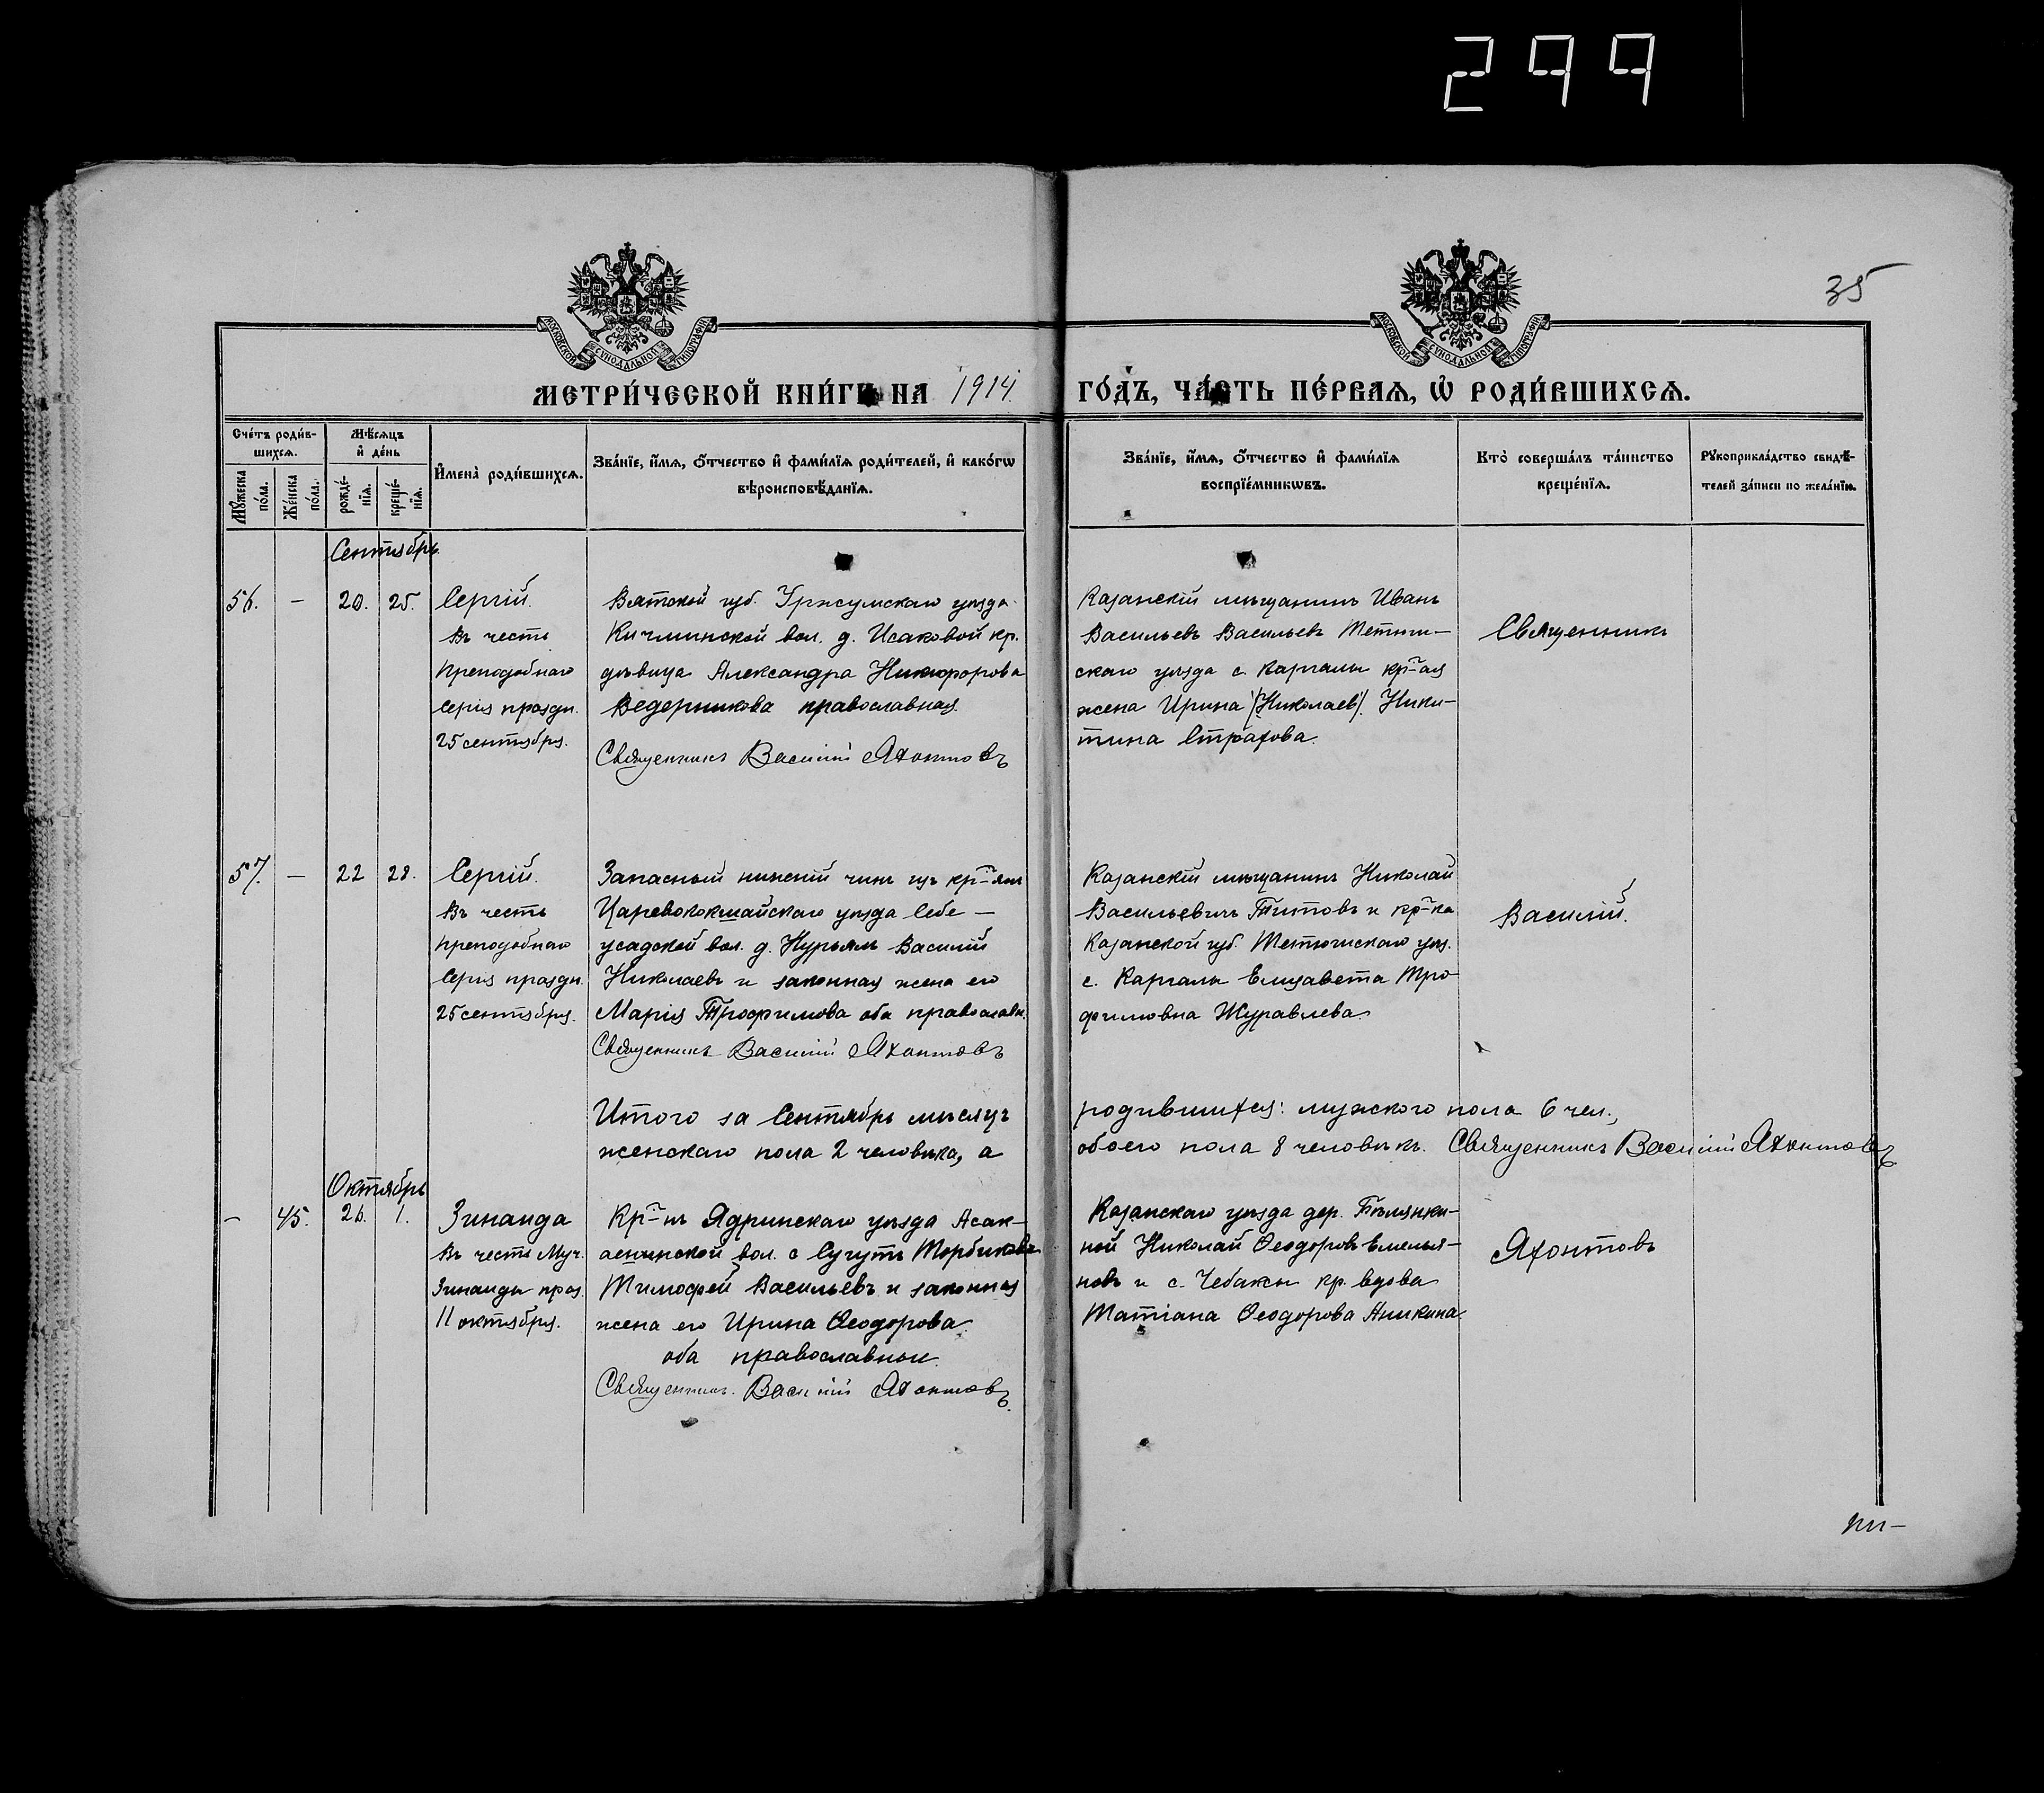 299
35
МОСКОВСКОЙ СѴНОДАЛЬНОЙ ТИПОГРАФІИ
МОСКОВСКОЙ СѴНОДАЛЬНОЙ ТИПОГРАФІИ
МЕТРИ́ЧЕСКОЙ КНИ́ГИ НА 1914 ГО́ДЪ, ЧА́СТЬ ПЕ́РВАЯ, Ѡ҆ РОДИ́ВШИХСѦ.
Сче́тъ роди́в-
шихсѧ.
Мѹ́жеска по́ла.
Же́нска по́ла.
Мѣ́сѧцъ
и҆ де́нь
рожде́-
нїѧ.
креще́-
нїѧ.
И҆мена̀ роди́вшихсѧ.
Зва́нїе, и҆́мѧ, ѻ҆́тчество и҆ фами́лїѧ роди́телей, и҆ како́гѡ
вѣроисповѣ́данїѧ.
Зва́нїе, и҆́мѧ, ѻ҆́тчество и҆ фами́лїѧ
воспрїе́мникѡвъ.
Кто̀ соверша́лъ та́инство
креще́нїѧ.
Рѹкоприкла́дство свидѣ́-
телей за́писи по жела́нїю.
Сентябрь.
56. — 20. 25.
Сергій.
Въ честь
Преподобнаго
Сергія праздн.
25 сентября.
Вятской губ. Уржумскаго уѣзда
Кичминской вол. д. Исаковой кр.
дѣвица Александра Никифорова
Ведерникова православная.
Священникъ Василій Яхонтовъ
Казанскій мѣщанинъ Иванъ
Васильевъ Васильевъ Тетюш-
скаго уѣзда с. Каргалы кр-ая
жена Ирина (Николаев). Ники-
тина Страхова.
Священникъ
57. — 22 28.
Сергій.
Въ честь
преподобнаго
Сергія праздн.
25 сентября.
Запасный нижній чинъ изъ кр-янъ
Царевококшайскаго уѣзда Себе-
усадской вол. д. Нурьялъ Василій
Николаевъ и законная жена его
Марія Трофимова оба православн.
Священникъ Василій Яхонтовъ
Казанскій мѣщанинъ Николай
Васильевичъ Титовъ и кр-ка
Казанской губ. Тетюшскаго уѣз.
с. Каргалы Елизавета Тро-
фимовна Журавлева.
Василій.
Итого за Сентябрь мѣсяцъ родившихся: мужского пола 6 чел.,
женскаго пола 2 человѣка, а обоего пола 8 человѣкъ. Священникъ Василій Яхонтовъ
Октябрь
— 45. 26. 1.
Зинаида
Въ честь Муч.
Зинаиды праз.
11 октября.
Кр-нъ Ядринскаго уѣзда Асак-
асинской вол. с Сугутъ Торбиково
Тимофей Васильевъ и законная
жена его Ирина Ѳеодорова
оба православные.
Священникъ. Василій Яхонтовъ.
Казанскаго уѣзда дер.
ной Николай Ѳеодоровъ Емелья-
новъ и с. Чебаксы кр. вдова
Татіана Ѳеодорова Аникина.
Яхонтовъ